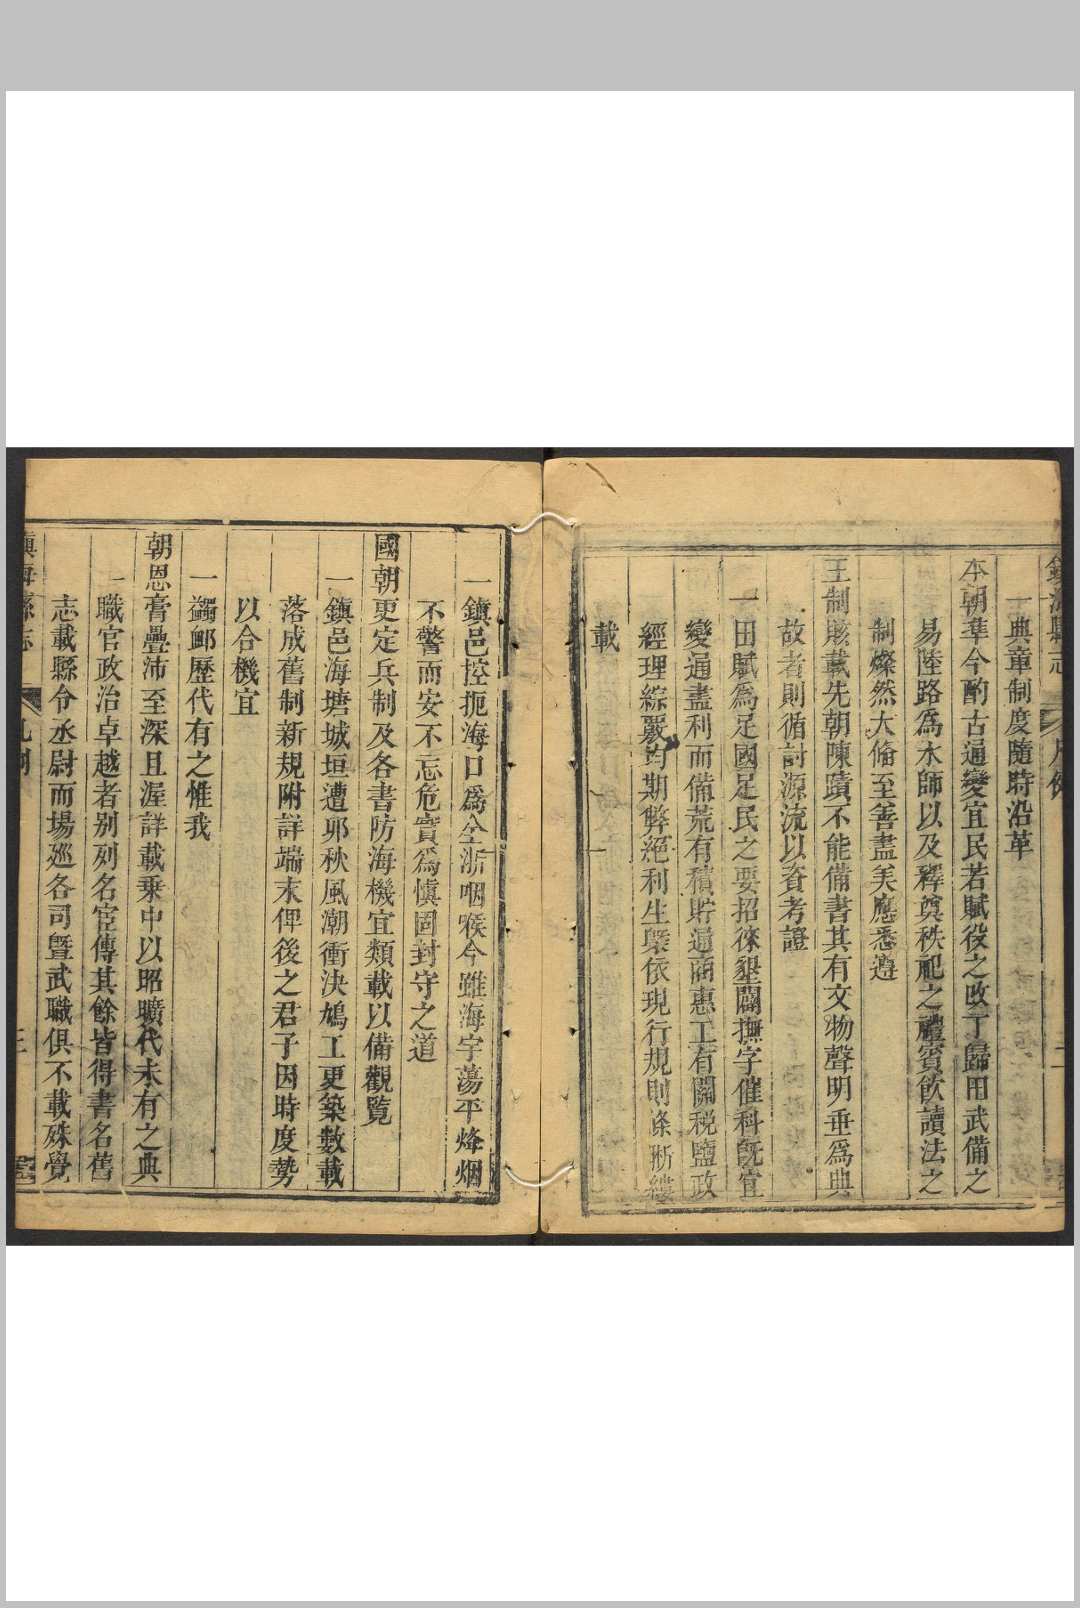 鎮海縣志 凡例 二
一典章制度隨時沿革
本朝準今酌古通變宜民若賦役之改丁歸田武備之
易陸路為水師以及釋奠秩祀之禮賓飲讀法之
制燦然大備至善盡美應悉遵
王制賅載先朝陳蹟不能備書其有文物聲明垂為典
故者則循討源流以資考證
一田賦為足國足民之要招徠墾闢撫字催科旣宜
變通盡利而備荒有積貯通商惠工有關稅鹽政
經理綜嚴筠期弊絕利生槩依現行規則條晰縷
載
一鎮邑控扼海口為全浙咽喉今雖海宇蕩平烽烟
不警而安不忘危實為慎固封守之道
國朝更定兵制及各書防海機宜類載以備觀覽
一鎮邑海塘城垣遭夘秋風潮衝決鳩工更築數載
落成舊制新規附詳端末俾後之君子因時度勢
以合機宜
一蠲䘏歷代有之惟我
朝恩膏疊沛至深且渥詳載乗中以昭曠代未有之典
一職官政治卓越者別列名宦傳其餘皆得書名舊
志載縣令丞尉而塲廵各司曁武職俱不載殊覺
鎮海縣志 凡例 三